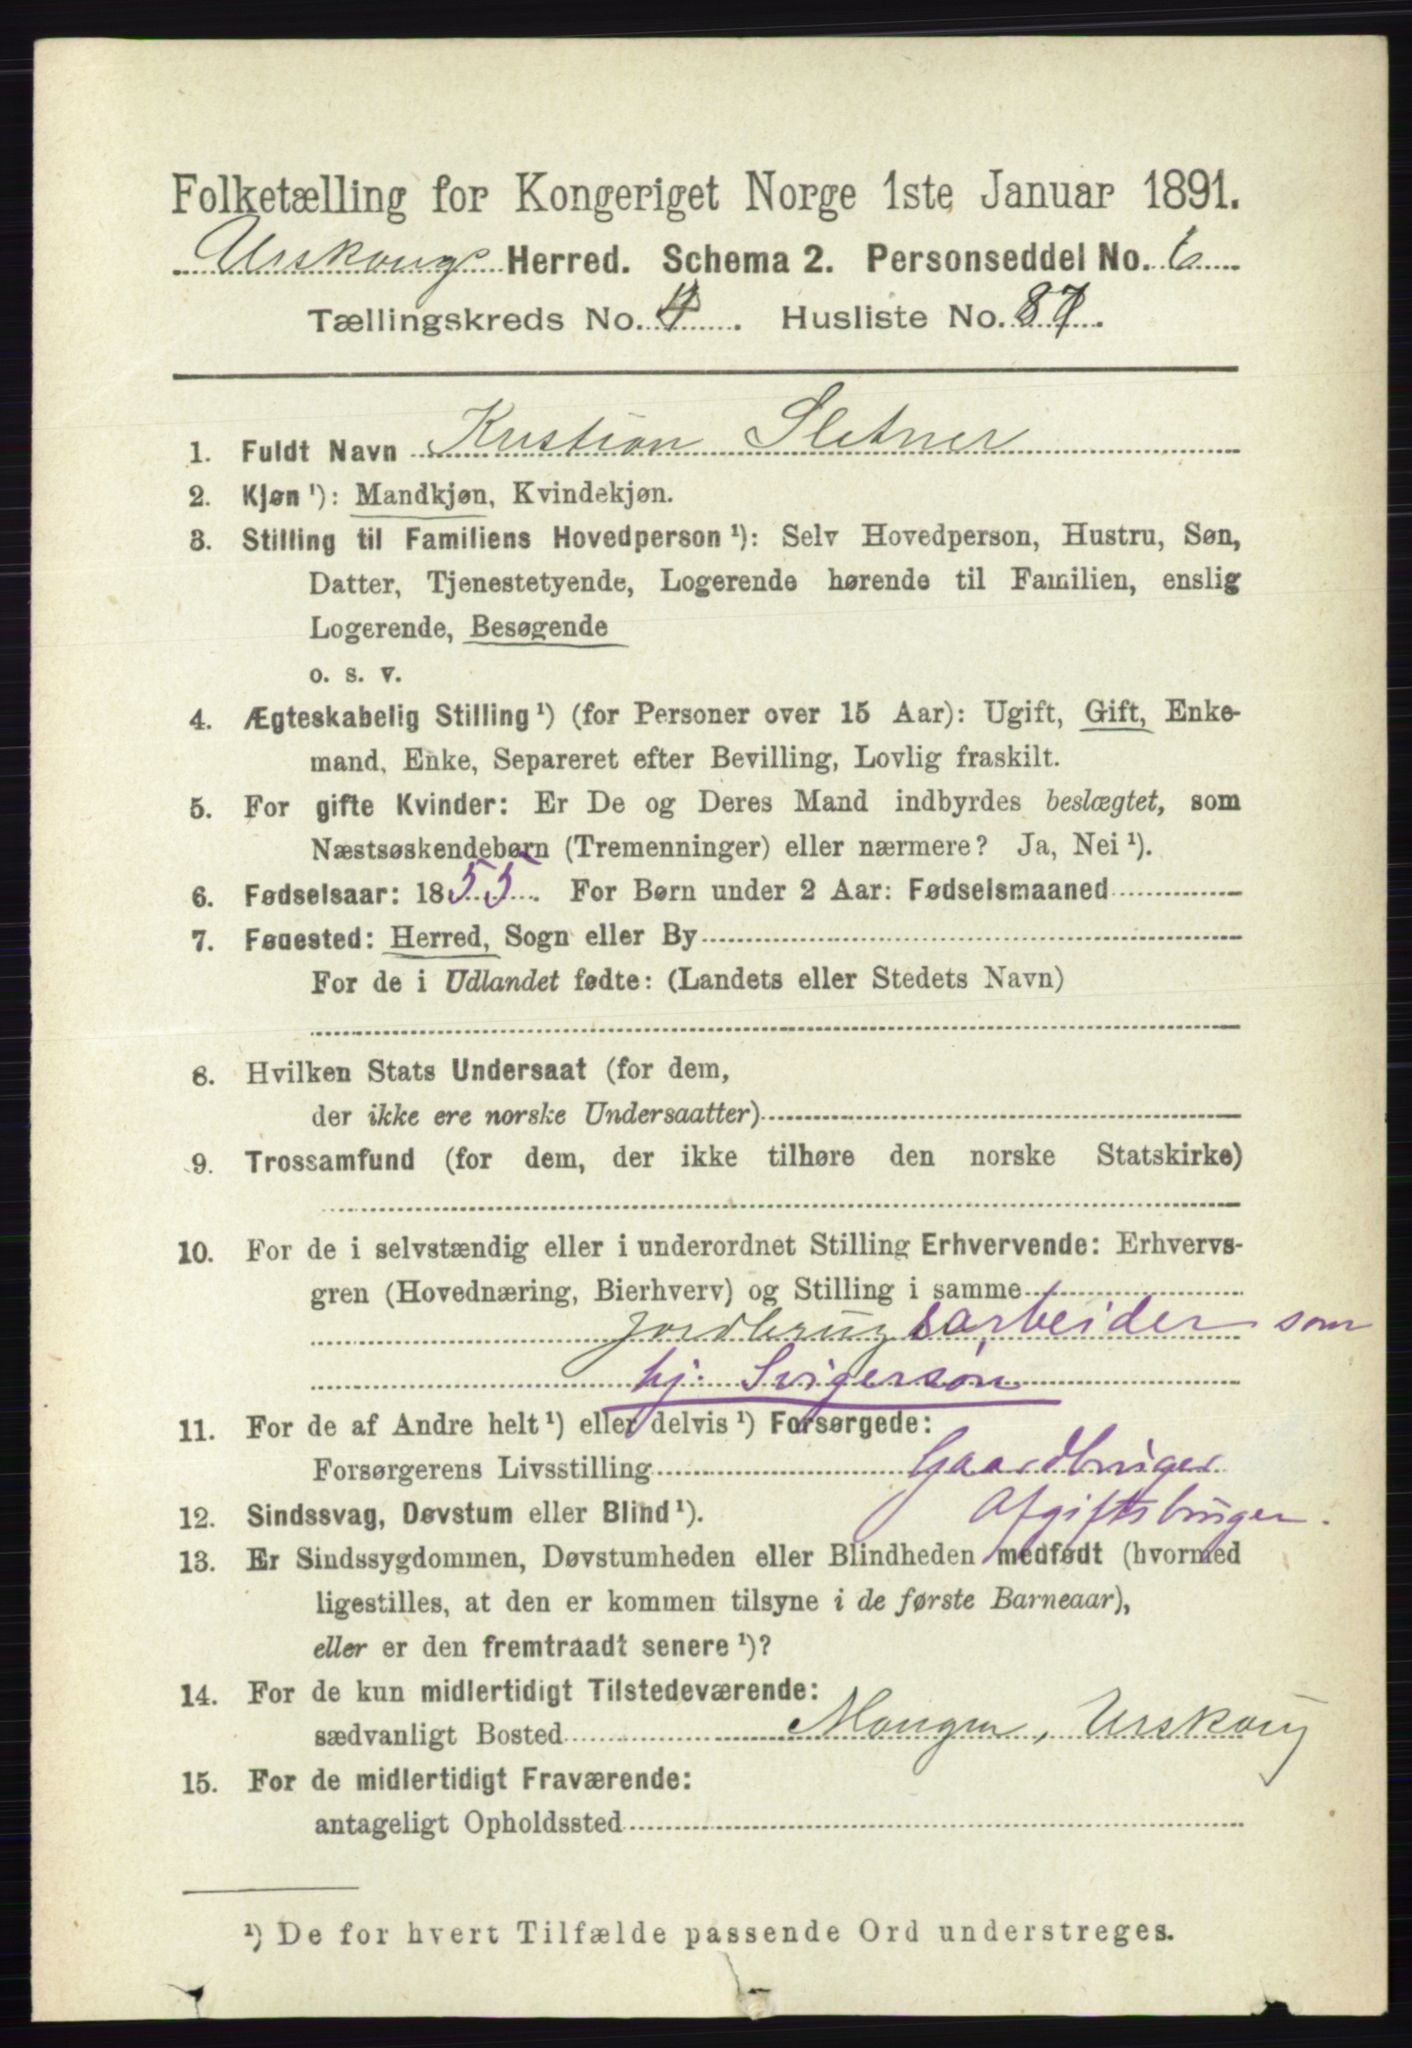 Folketælling for Kongeriget Norge 1ste Januar 1891.
Urskougs Herred. Schema 2. Personseddel No. 6
Tællingskreds No. 4. Husliste No. 87.
1. Fuldt Navn Kristian Sletner
2. Kjøn ¹): Mandkjøn, Kvindekjøn.
3. Stilling til Familiens Hovedperson ¹): Selv Hovedperson, Hustru, Søn,
Datter, Tjenestetyende, Logerende hørende til Familien, enslig
Logerende, Besøgende
o. s. v.
4. Ægteskabelig Stilling ¹) (for Personer over 15 Aar): Ugift, Gift, Enke-
mand, Enke, Separeret efter Bevilling, Lovlig fraskilt.
5. For gifte Kvinder: Er De og Deres Mand indbyrdes beslægtet, som
Næstsøskendebørn (Tremenninger) eller nærmere? Ja, Nei ¹).
6. Fødselsaar: 1855. For Børn under 2 Aar: Fødselsmaaned
7. Fødested: Herred, Sogn eller By
For de i Udlandet fødte: (Landets eller Stedets Navn)
8. Hvilken Stats Undersaat (for dem,
der ikke ere norske Undersaatter)
9. Trossamfund (for dem, der ikke tilhøre den norske Statskirke)
10. For de i selvstændig eller i underordnet Stilling Erhvervende: Erhvervs-
gren (Hovednæring, Bierhverv) og Stilling i samme
Jordbrugsarbeider som
hj. Svigersøn
11. For de af Andre helt ¹) eller delvis ¹) Forsørgede:
Forsørgerens Livsstilling Gaardbruger
Afgiftsbruger.
12. Sindssvag, Døvstum eller Blind ¹).
13. Er Sindssygdommen, Døvstumheden eller Blindheden medfødt (hvormed
ligestilles, at den er kommen tilsyne i de første Barneaar),
eller er den fremtraadt senere ¹)?
14. For de kun midlertidigt Tilstedeværende:
sædvanligt Bosted Mangen, Urskoug
15. For de midlertidigt Fraværende:
antageligt Opholdssted
¹) De for hvert Tilfælde passende Ord understreges.